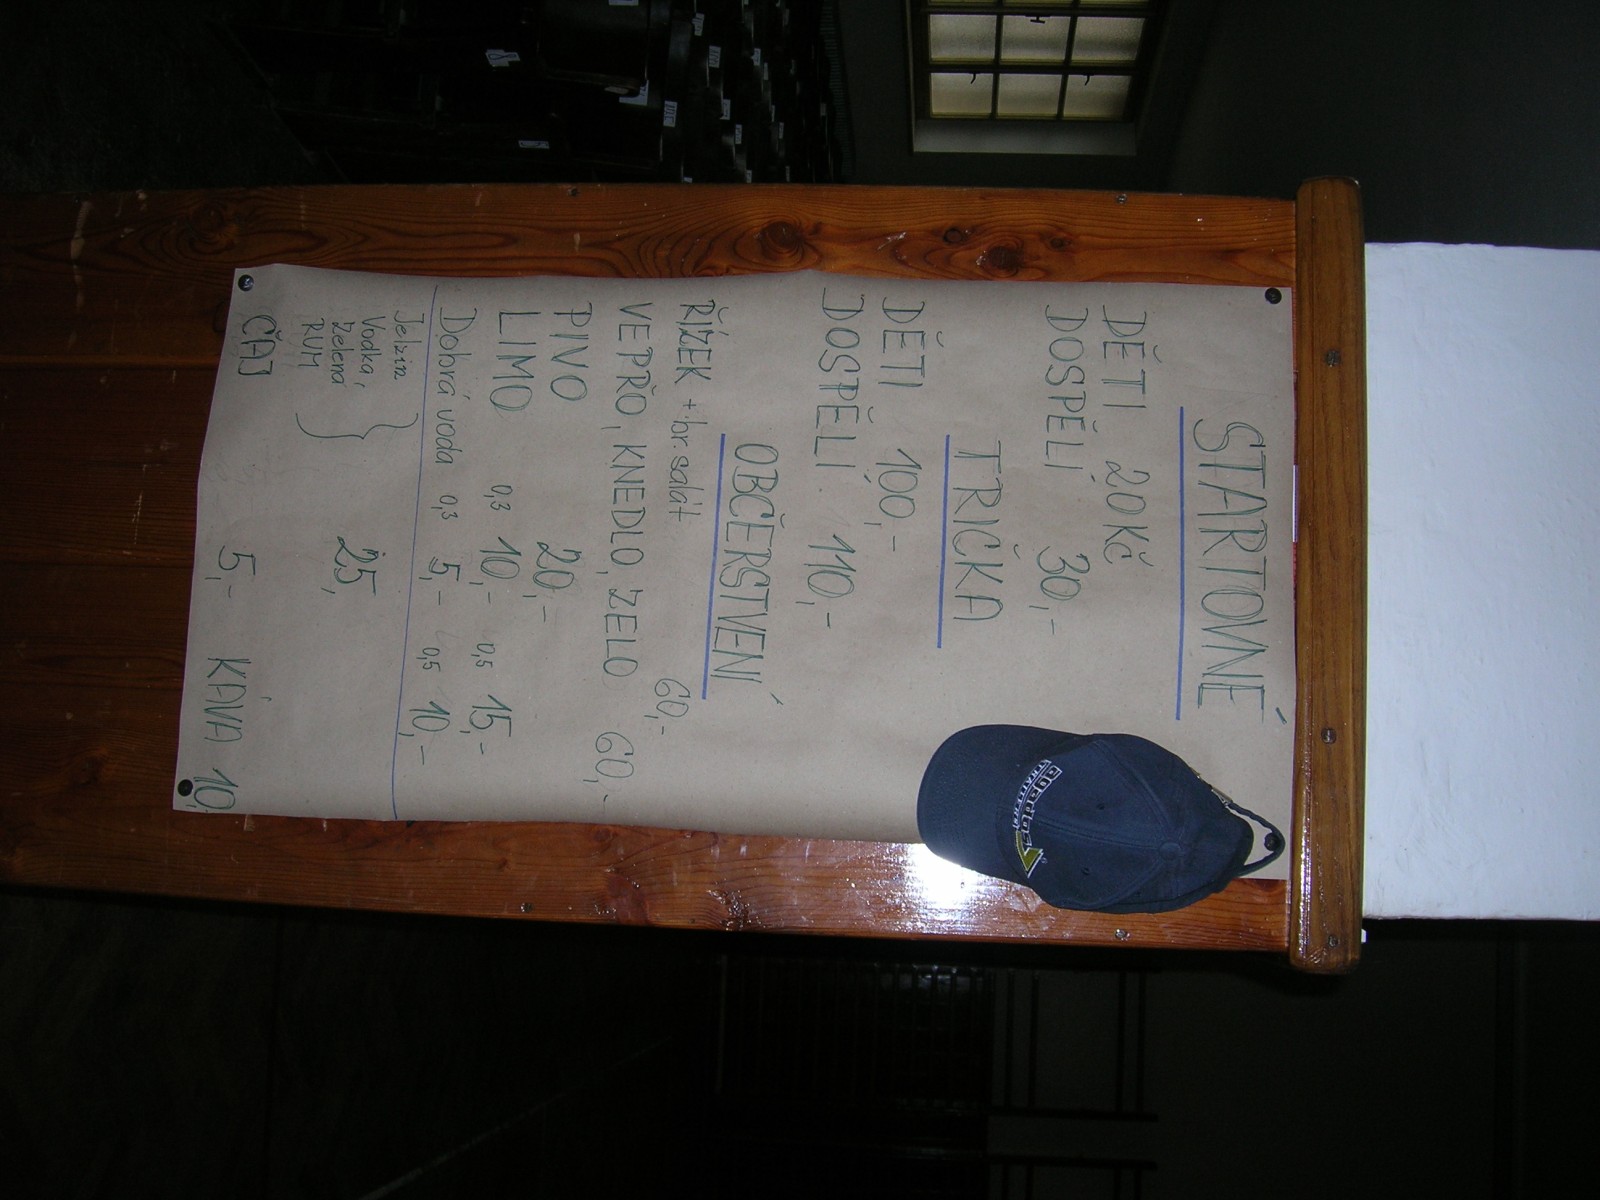 STARTOVNÉ
DĚTI 20 Kč
DOSPĚLÍ 30,-
TRIČKA
DĚTI 100,-
DOSPĚLÍ 110,-
OBČERSTVENÍ
ŘÍZEK + bor. salát 60,-
VEPŘO, KNEDLO, ZELO 60,-
PIVO 20,-
LIMO 0,3 10,- 0,5 15,-
Dobrá voda 0,3 5,- 0,5 10,-
Jelzin
Vodka,
Zelená } 25,
RUM
ČAJ 5,- KÁVA 10,